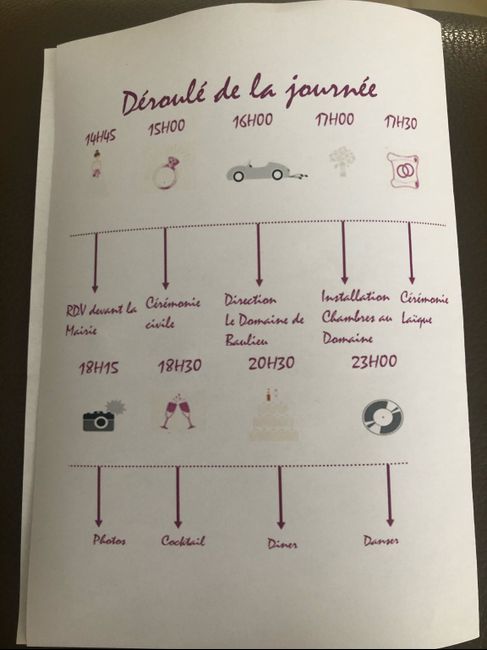 Déroulé de la journée
14H45 15H00 16H00 17H00 17H30
RDV devant la Mairie
Cérémonie civile
Direction
Le Domaine de
Baulieu
Installation
Chambres au
Domaine
Cérémonie
Laïque
18H15 18H30 20H30 23H00
Photos Cocktail Diner Danser